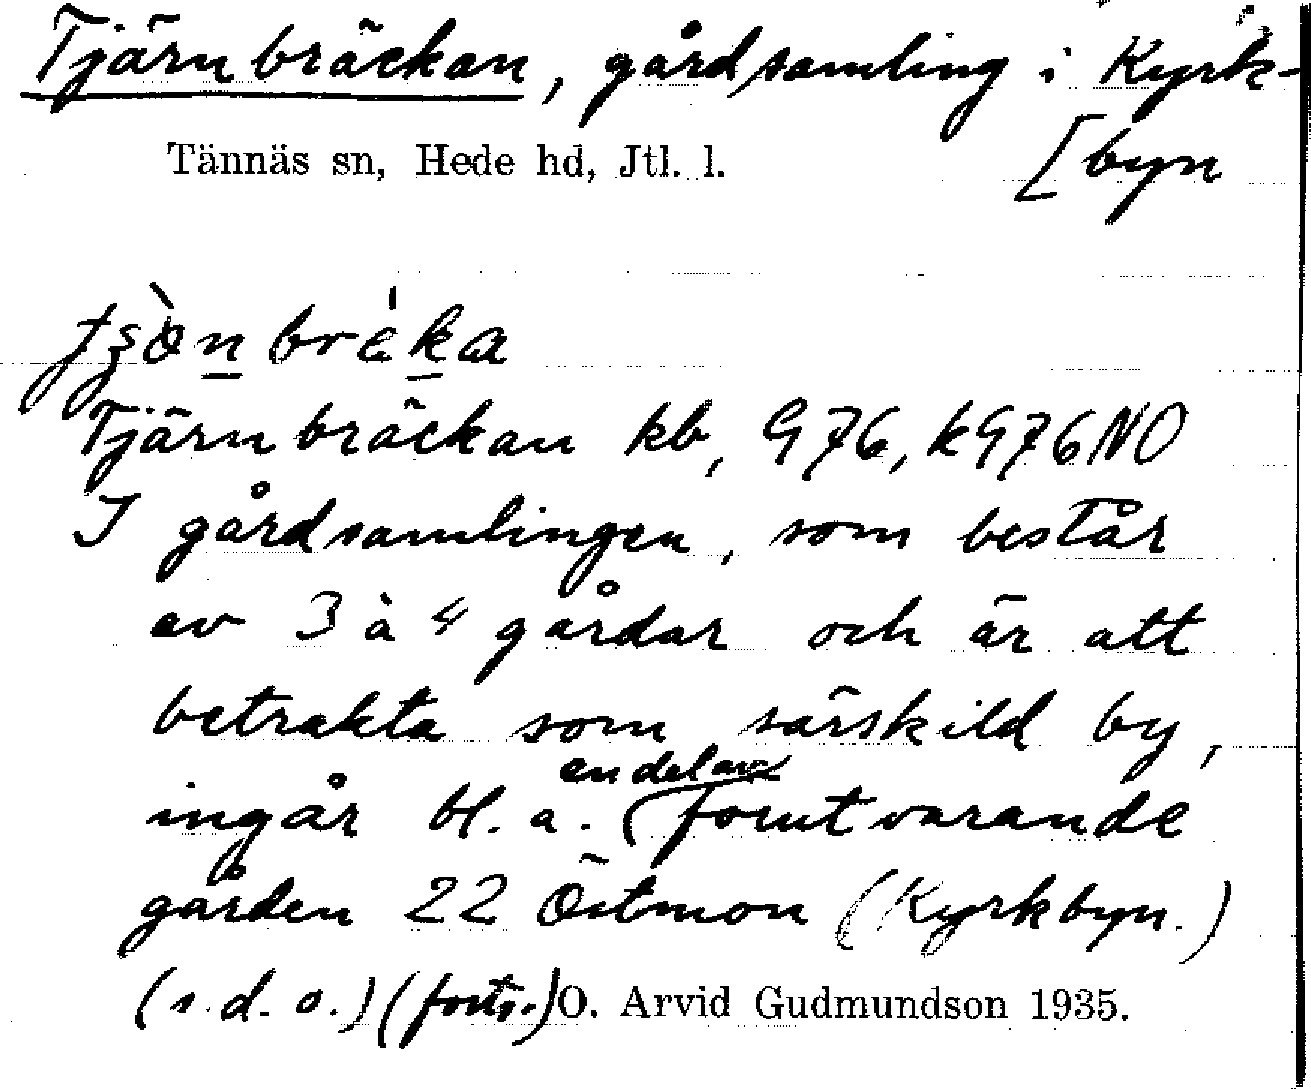 Tjärnbräckan, gårdsamling i Kyrk-
[byn
Tännäs sn, Hede hd, Jtl. l.
Tjärnbräckan kb, G76, kG76NO
I gårdsamlingen, som består
av 3 à 4 gårdar och är att
betrakta som särskild by,
en del av
ingår bl. a. (forutvarande
gården 22 Östmon (Kyrkbyn.)
(s. d. o.) (forts.) O. Arvid Gudmundson 1935.